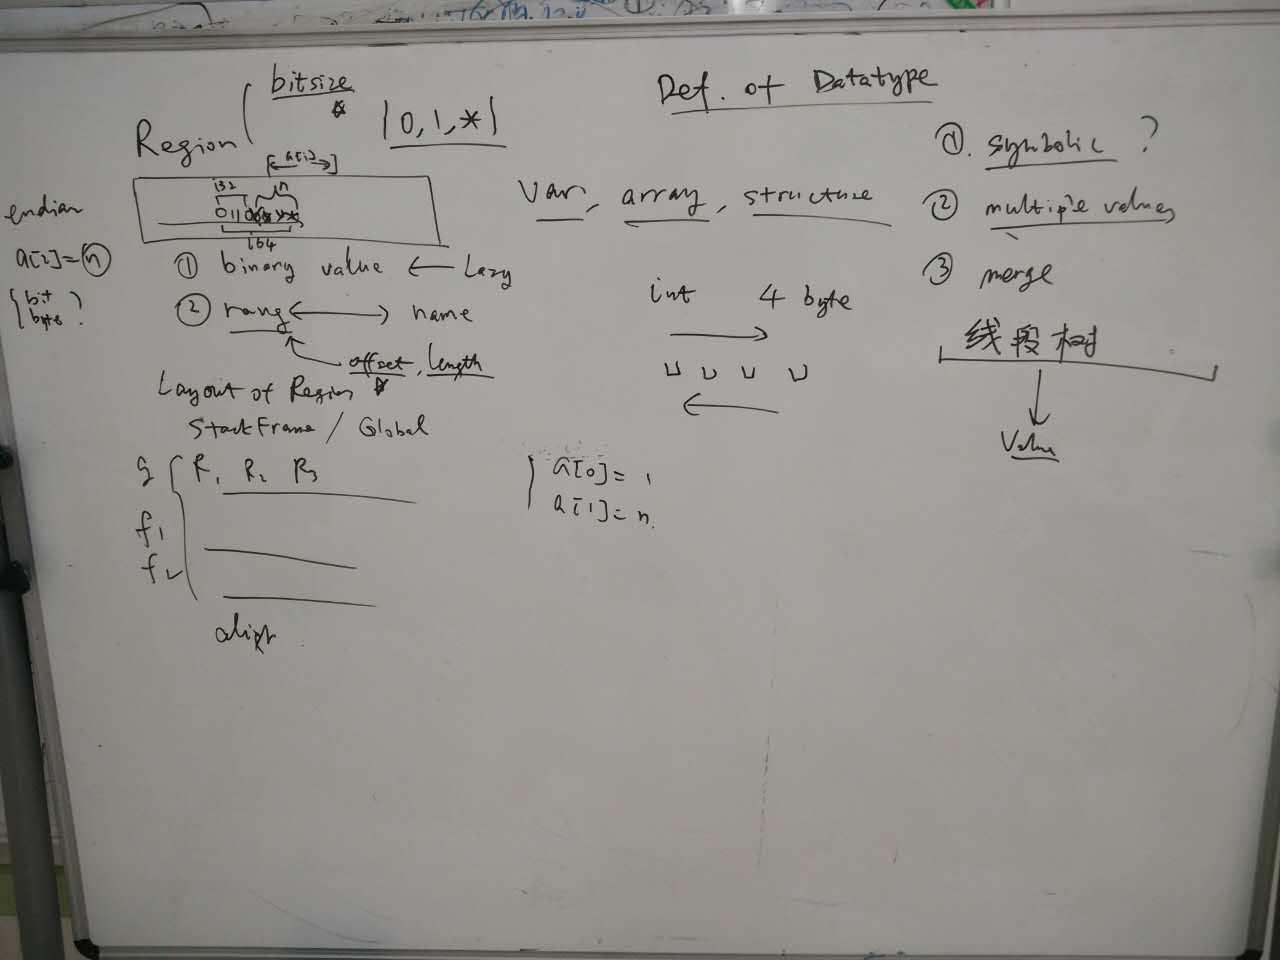 bitsize
Region
|0,1,*|
a[i]
i32
n
i64
endian
a[2]=n
bit
byte ?
① binary value ← Lazy
② rang ↔ name
offset, length
Layout of Region
StackFrame / Global
g { R₁ R₂ R₃
f₁
f₂
align
Def. of Datatype
var, array, structure
int 4 byte
a[0]= 1
a[1]= n
①. symbolic ?
② multiple values
③ merge
线段树
Value